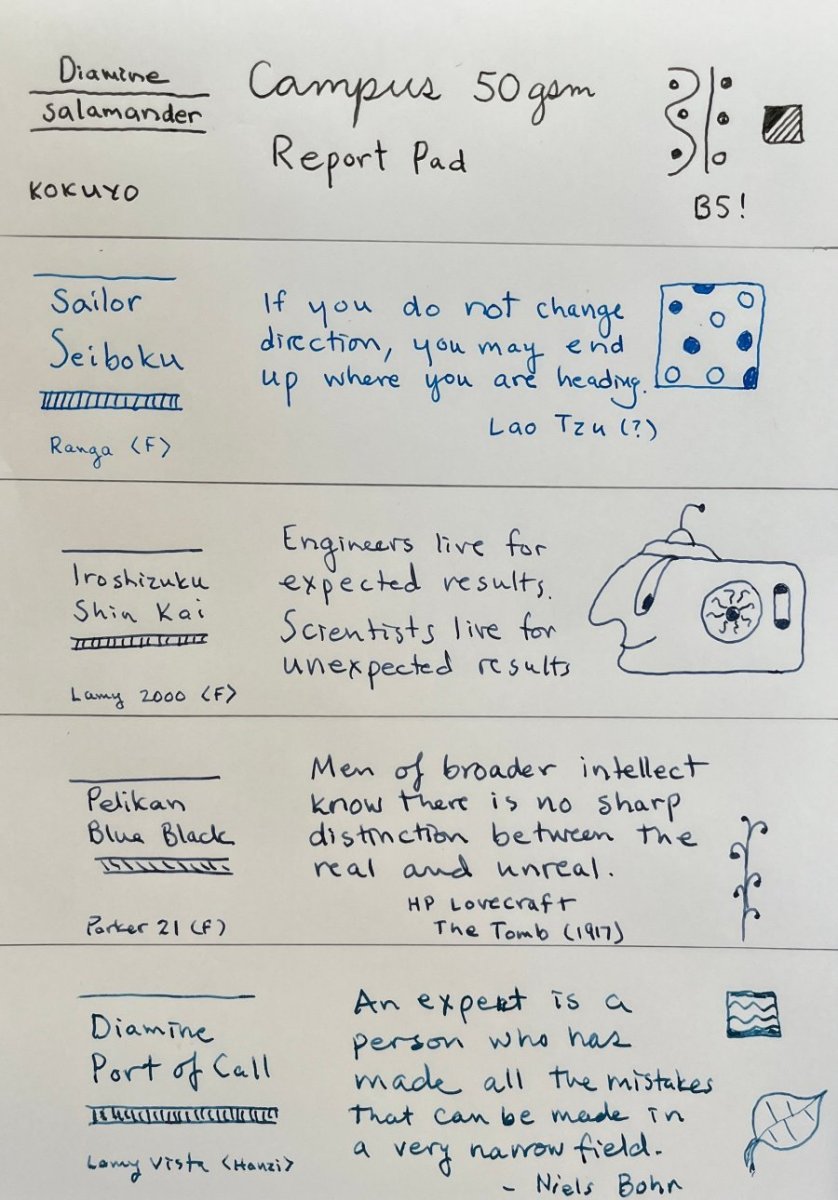 Diamine
Salamander
KOKUYO
Campus 50gsm
Report Pad
B5!
Sailor
Seiboku
Ranga <F>
If you do not change
direction, you may end
up where you are heading.
Lao Tzu (?)
Iroshizuku
Shin Kai
Lamy 2000 <F>
Engineers live for
expected results.
Scientists live for
unexpected results
Pelikan
Blue Black
Parker 21 (F)
Men of broader intellect
know there is no sharp
distinction between the
real and unreal.
HP Lovecraft
The Tomb (1917)
Diamine
Port of Call
Lamy Vista <Hanzi>
An expert is a
person who has
made all the mistakes
that can be made in
a very narrow field.
- Niels Bohr